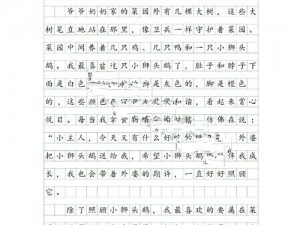 爷爷奶奶家的菜园外有几棵大树，这些大
树笔直地站在那里，像卫兵一样守护着菜园。
菜园中间养着几只鸡、几只鸭和一只小狮头
鹅。我最喜小狮头鹅了，肚子和脖子下
面是白色灰色的，脚是橙色
的，这些颜色和谐，看起来赏心
悦目。每当我拿着喂它，仿佛在说：
“小主人，今天又有什么好外婆
把小狮头鹅送给我，希望小狮头鹅伴我成
长，我也会带着外婆的期许，一直好好照顾
它。
除了照顾小狮头鹅，我最喜欢的要属在菜